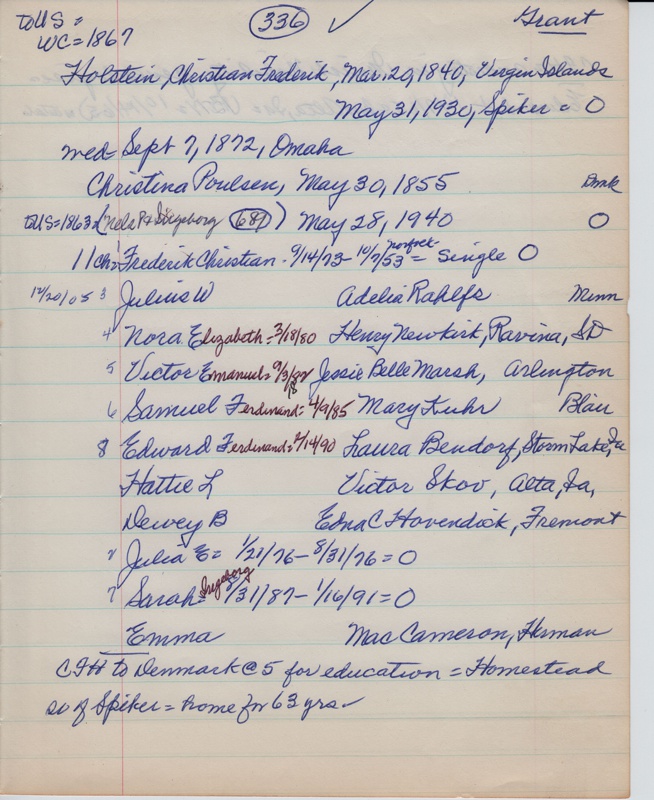 to US = 336 ✓ Grant
WC = 1867
Holstein, Christian Frederik, Mar. 20, 1840, Virgin Islands
May 31, 1930, Spiker = O
wed = Sept 7, 1872, Omaha
Christina Poulsen, May 30, 1855 Dmk
to US = 1863 = (Nels P & Ingeborg 687) May 28, 1940 O
11 ch = 1 Frederik Christian - 9/14/73 - 10/7/53 Norfolk = Single O
12/20/05 3 Julius W Adelia Rahlfs Minn
4 Nora Elizabeth = 3/18/80 Henry Newkirk, Ravina, SD
5 Victor Emanuel = 9/3/82 Jessie Belle Marsh, Arlington
6 Samuel Ferdinand = 4/9/85 Mary Kuhr Blair
8 Edward Ferdinand = /14/90 Laura Bendorf, Storm Lake, Ia
Hattie L Victor Skov, Alta, Ia,
Dewey B Edna C Havendick, Fremont
2 Julia E = 1/21/76 - 8/31/76 = O
7 Sarah Ingeborg = /31/87 - 1/16/91 = O
Emma Mac Cameron, Herman
CFH to Denmark @ 5 for education = Homestead
SW of Spiker = home for 63 yrs